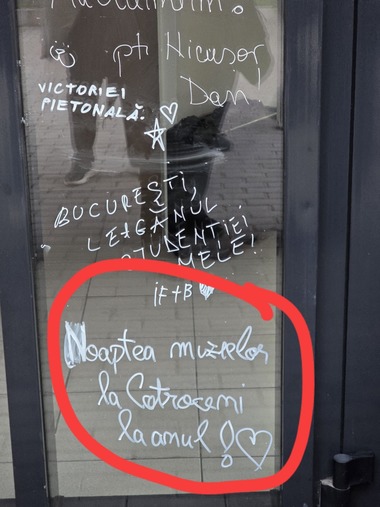 pt Nicușor
Dan!
VICTORIEI
PIETONALĂ.
BUCUREȘTI,
LEAGĂNUL
STUDENTIEI
MELE!
iF+B
Noaptea muzeelor
la Cotroceni
la anul!